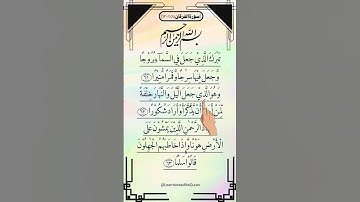 سورة الفرقان
بسم الله الرحمن الرحيم
تَبٰرَكَ الَّذِي جَعَلَ فِي السَّمَآءِ بُرُوجًا
وَّجَعَلَ فِيهَا سِرٰجًا وَّقَمَرًا مُّنِيرًا
وَهُوَ الَّذِي جَعَلَ الَّيْلَ وَالنَّهَارَ خِلْفَةً
لِّمَنْ أَنْ يَّذَّكَّرَ أَوْ أَرَادَ شُكُورًا
الرَّحْمٰنِ الَّذِينَ يَمْشُونَ عَلَى
الْأَرْضِ هَوْنًا وَّإِذَا خَاطَبَهُمُ الْجٰهِلُونَ
قَالُوا سَلٰمًا
@LearntoreadtheQuran